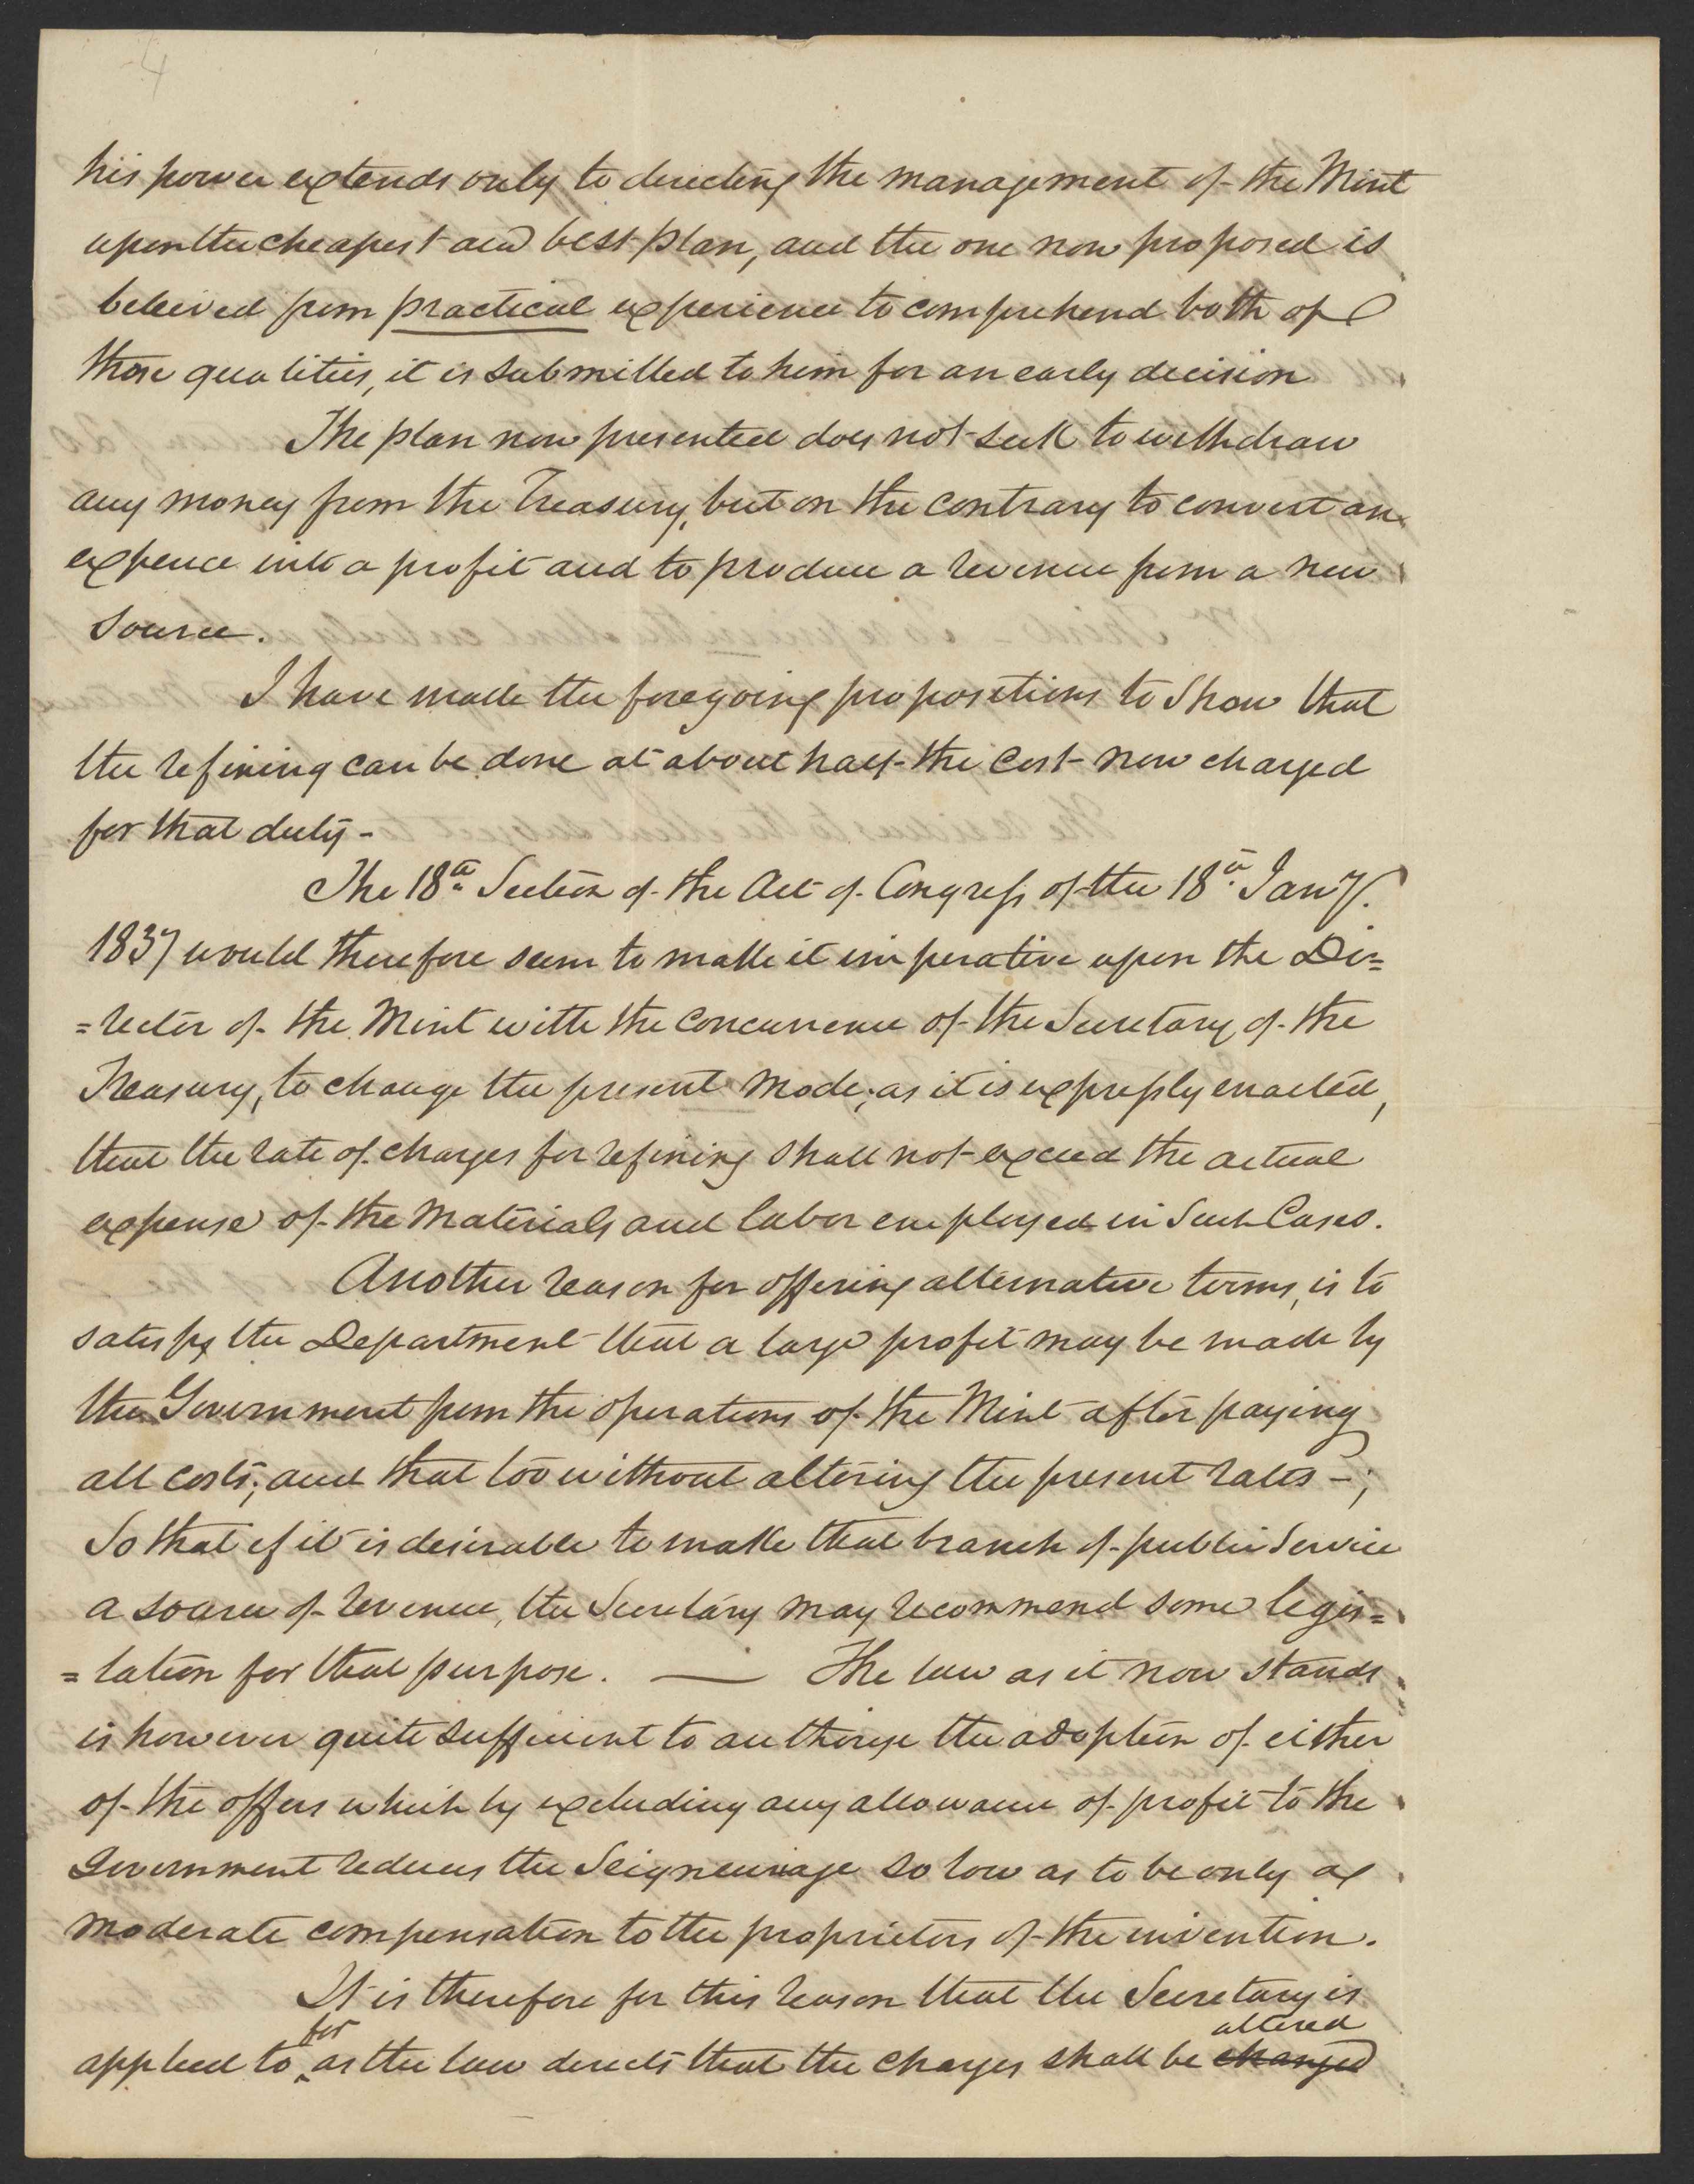 4
his power extends only to directing the management of the Mint
upon the cheapest and best plan, and the one now proposed is
beleived from practical experience to comprehend both of
those qualities, it is submitted to him for an early decision
The plan now presented does not seek to withdraw
any money from the Treasury, but on the contrary to convert an
expence into a profit and to produce a revenue from a new
source.
I have made the foregoing propositions to show that
the refining can be done at about half the cost now charged
for that duty -
The 18th Section of the Act of Congress of the 18th Jany.
1837 would therefore seem to make it imperative upon the Di=
=rector of the Mint with the concurrence of the Secretary of the
Treasury, to change the present mode; as it is expressly enacted,
that the rate of charges for refining shall not exceed the actual
expense of the Materials and labor employed in such Cases.
Another reason for offering alternative terms, is to
satisfy the Department that a large profit may be made by
the Government from the operations of the Mint after paying
all costs; and that too without altering the present rates -;
So that if it is desirable to make that branch of public Service
a source of revenue, the Secretary may recommend some legis=
=lation for that purpose. — The law as it now stands
is however quite sufficient to authorize the adoption of either
of the offers which by excluding any allowance of profit to the
Government reduces the Seigneurage so low as to be only a
moderate compensation to the proprietors of the invention.
It is therefore for this reason that the Secretary is
for altered
applied to, as the law directs that the charges shall be changed